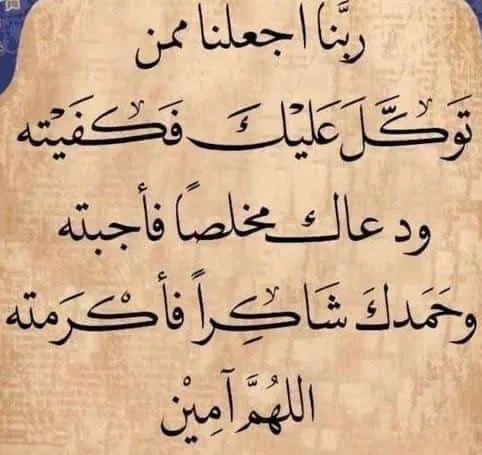 ربَّنا اجعلنا ممن
تَوَكَّلَ عَلَيْكَ فَكَفَيْتَه
ودعاك مخلصاً فأجبته
وحَمَدكَ شَاكِراً فأكْرَمته
اللهُمَّ آمِيْن